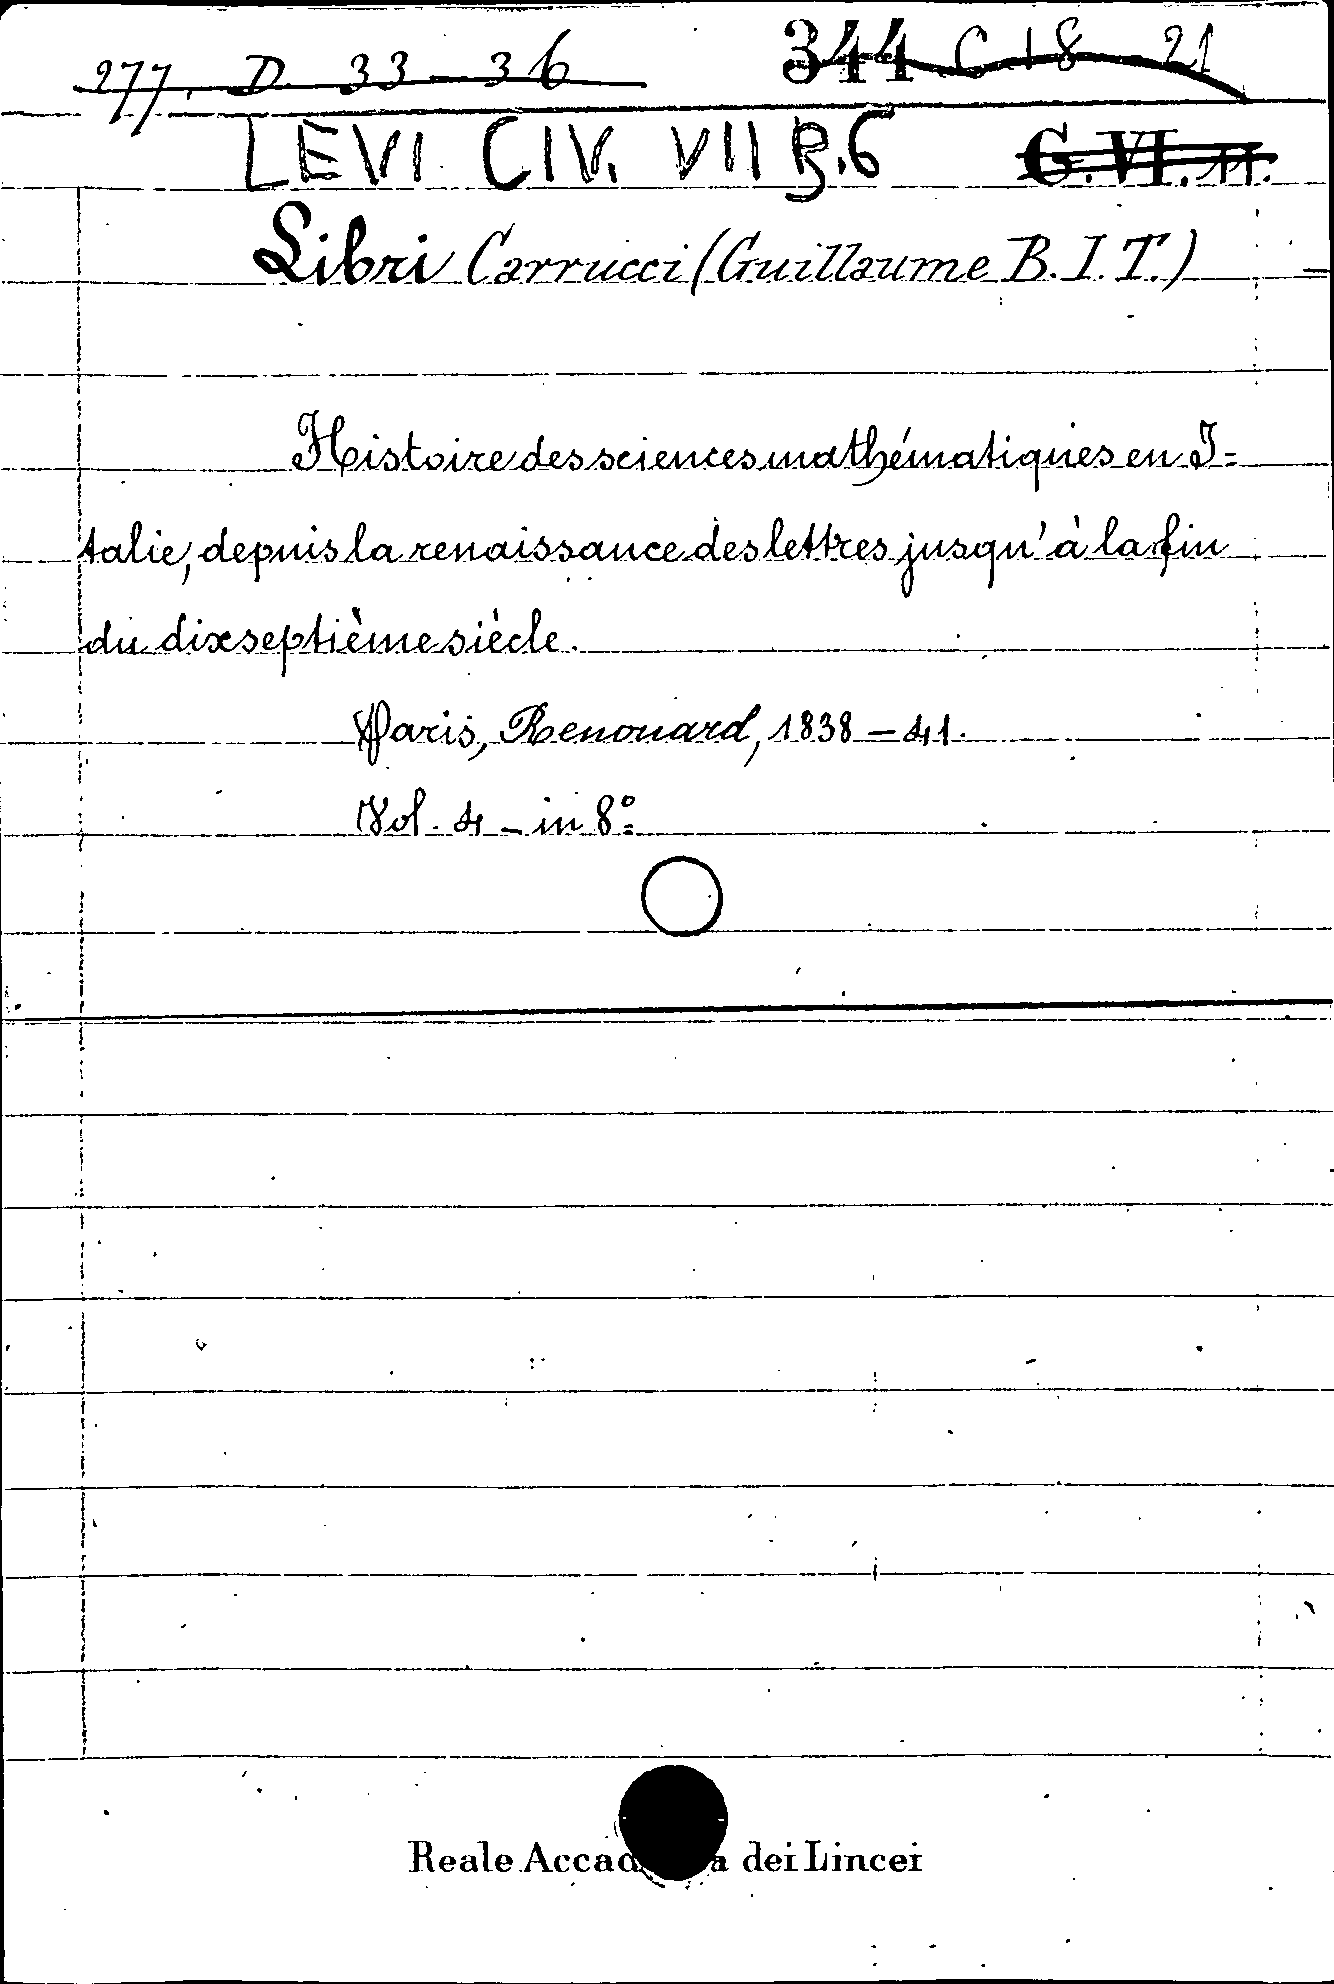 277. D 33-36 344 C 18-21
LEVI CIV. VII B.6 G.VI.11.
Libri Carrucci (Guillaume B.I.T.)
Histoire des sciences mathématiques en I=
talie, depuis la renaissance des lettres jusqu'à la fin
du dixseptième siècle.
Paris, Renouard, 1838-41.
Vol. 4 - in 8º.
Reale Accad a dei Lincei